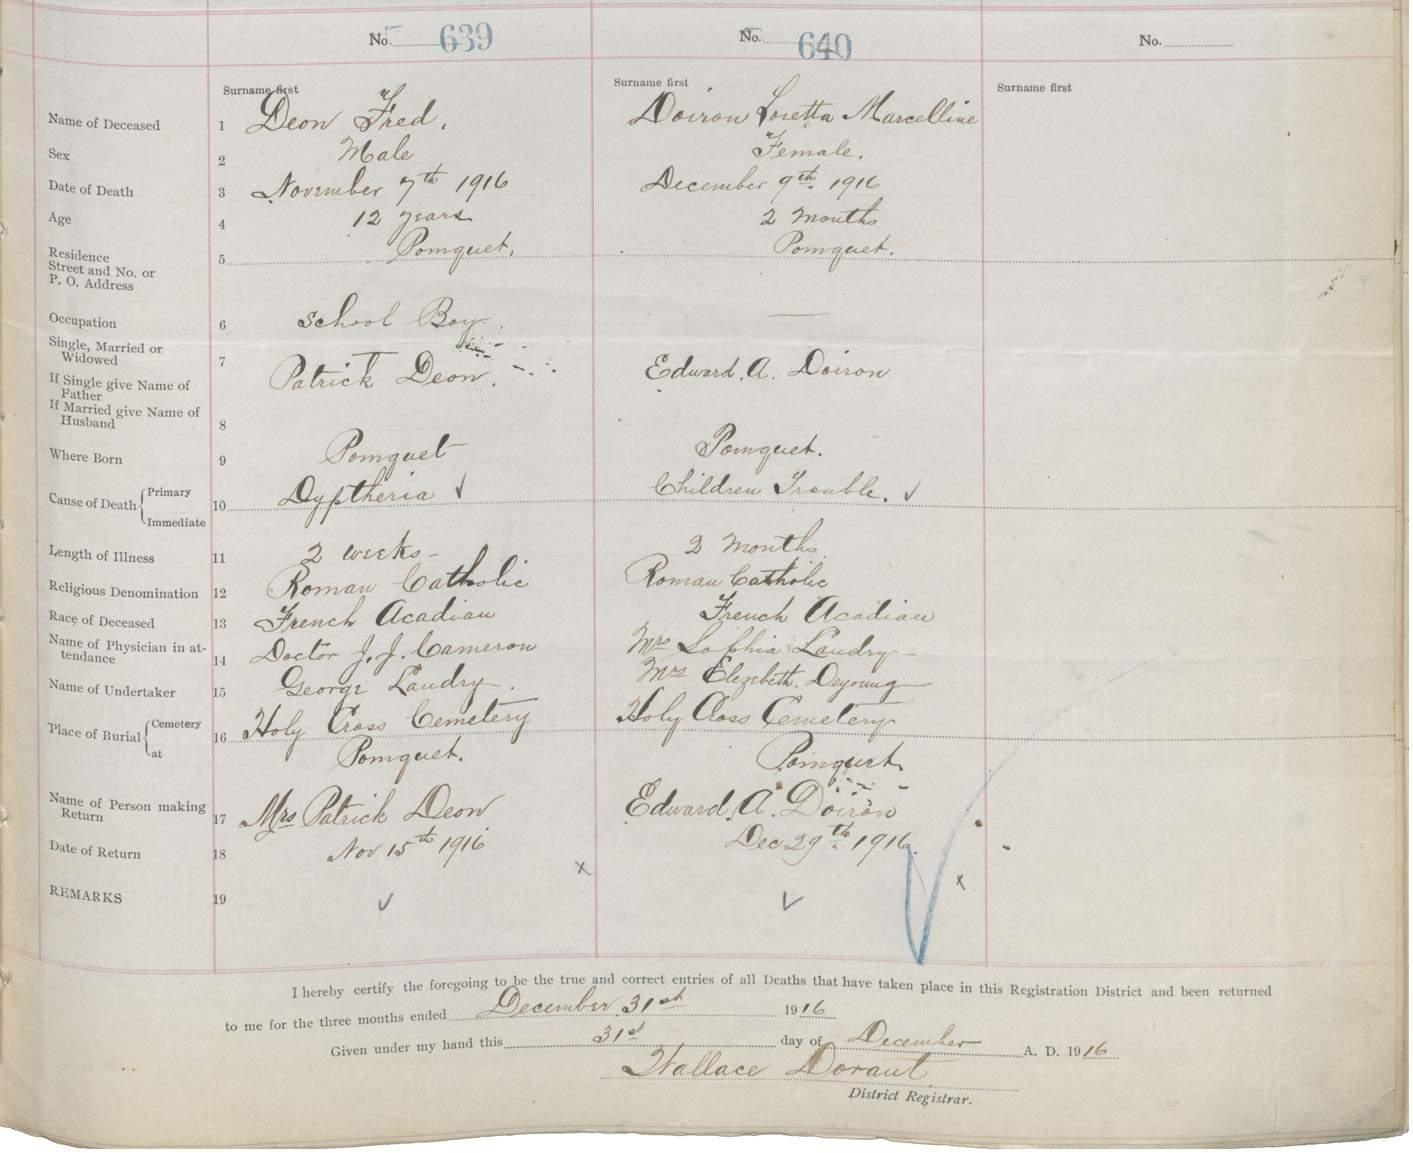 No. 639 No. 640 No.
Surname first Surname first Surname first
Name of Deceased 1 Deon Fred. Doiron Loretta Marcelline
Sex 2 Male Female.
Date of Death 3 November 7th 1916 December 9th 1916
Age 4 12 years 2 months
Residence
Street and No. or
P. O. Address 5 Pomquet. Pomquet.
Occupation 6 School Boy. —
Single, Married or
Widowed 7
If Single give Name of
Father Patrick Deon. Edward. A. Doiron
If Married give Name of
Husband 8
Where Born 9 Pomquet Pomquet.
Cause of Death { Primary Dyptheria ✓ Children Trouble. ✓
Immediate 10
Length of Illness 11 2 weeks – 2 Months
Religious Denomination 12 Roman Catholic Roman Catholic
Race of Deceased 13 French Acadian French Acadian
Name of Physician in at-
tendance 14 Doctor J. J. Cameron Mrs Sophia Landry
Name of Undertaker 15 George Landry. Mrs Elezebeth. Deyoung
Place of Burial { Cemetery 16 Holy Cross Cemetery Holy Cross Cemetery
at Pomquet. Pomquet
Name of Person making
Return 17 Mrs Patrick Deon Edward. A. Doiron
Date of Return 18 Nov 15th 1916 Dec 29th 1916.
x x
REMARKS 19 ✓ ✓
I hereby certify the foregoing to be the true and correct entries of all Deaths that have taken place in this Registration District and been returned
to me for the three months ended December 31st 1916
Given under my hand this 31st day of December A. D. 1916
Wallace Dorant
District Registrar.